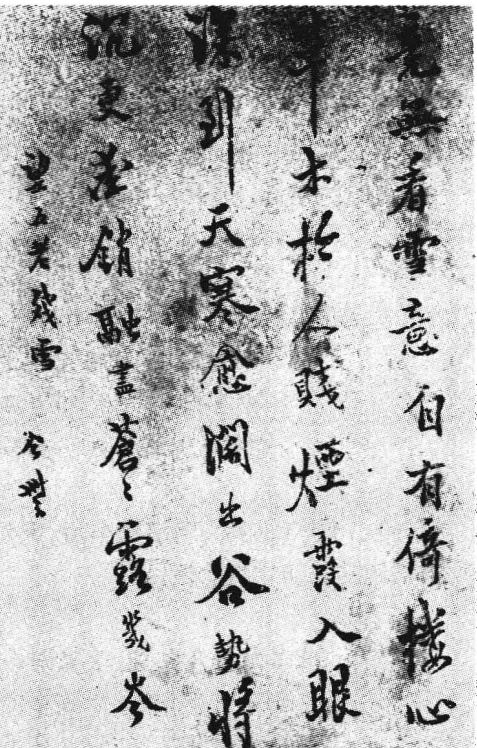 竟無看雪意自有倚樓心
草木於人賤煙霞入眼
深到天寒愈闊出谷勢將
沉更銷融盡蒼々露幾岑
望五老殘雪